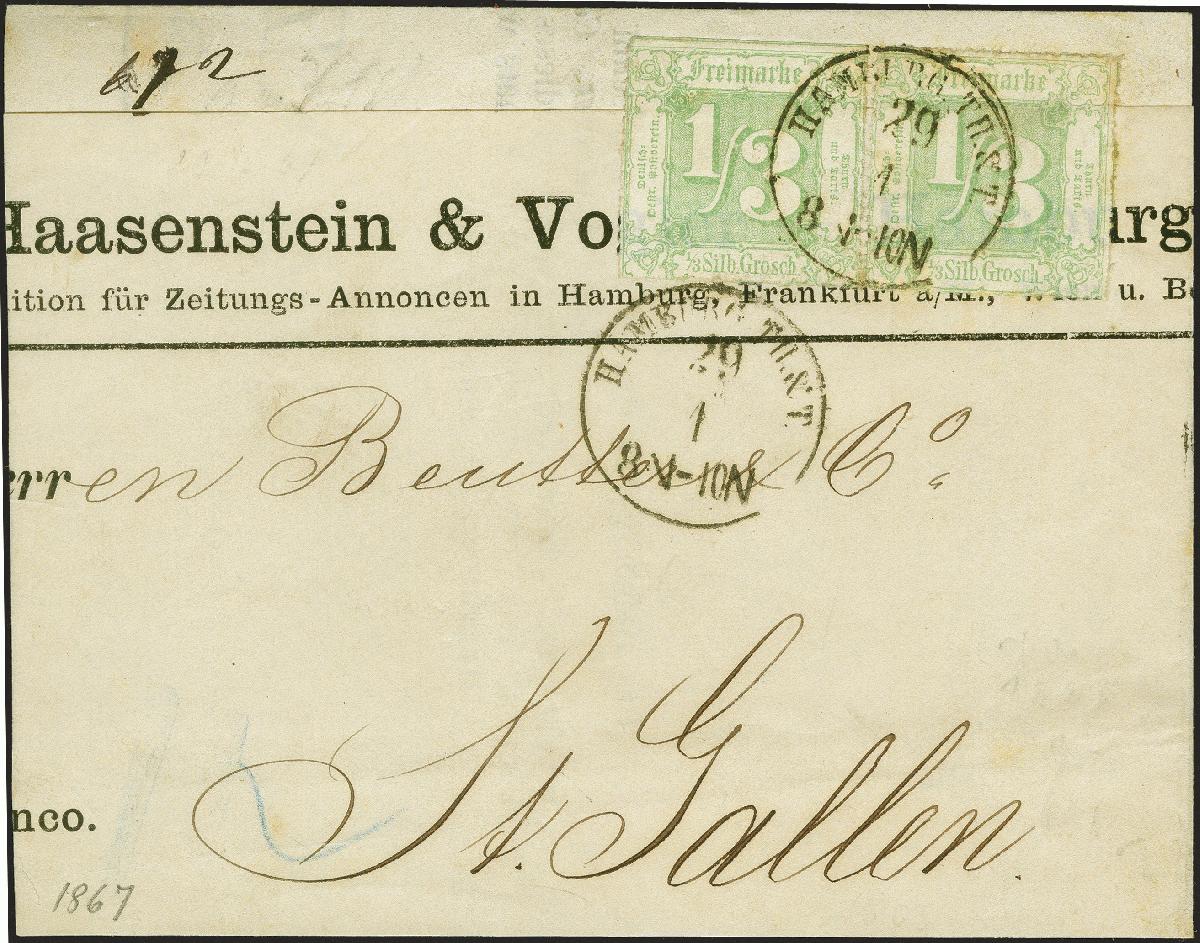 672
Freimarke Freimarke
1/3 1/3
Deutsch-Oestr. Postverein.
1/3 Silb. Grosch. 1/3 Silb. Grosch.
HAMBURG TH. & T.
29
1
8 V-10N
Haasenstein & Vo urg
ition für Zeitungs-Annoncen in Hamburg, Frankfurt a/M., Wien u. Be
HAMBURG TH. & T.
29
1
8 V-10N
erren Beutter & Co.
St. Gallen.
nco.
1867